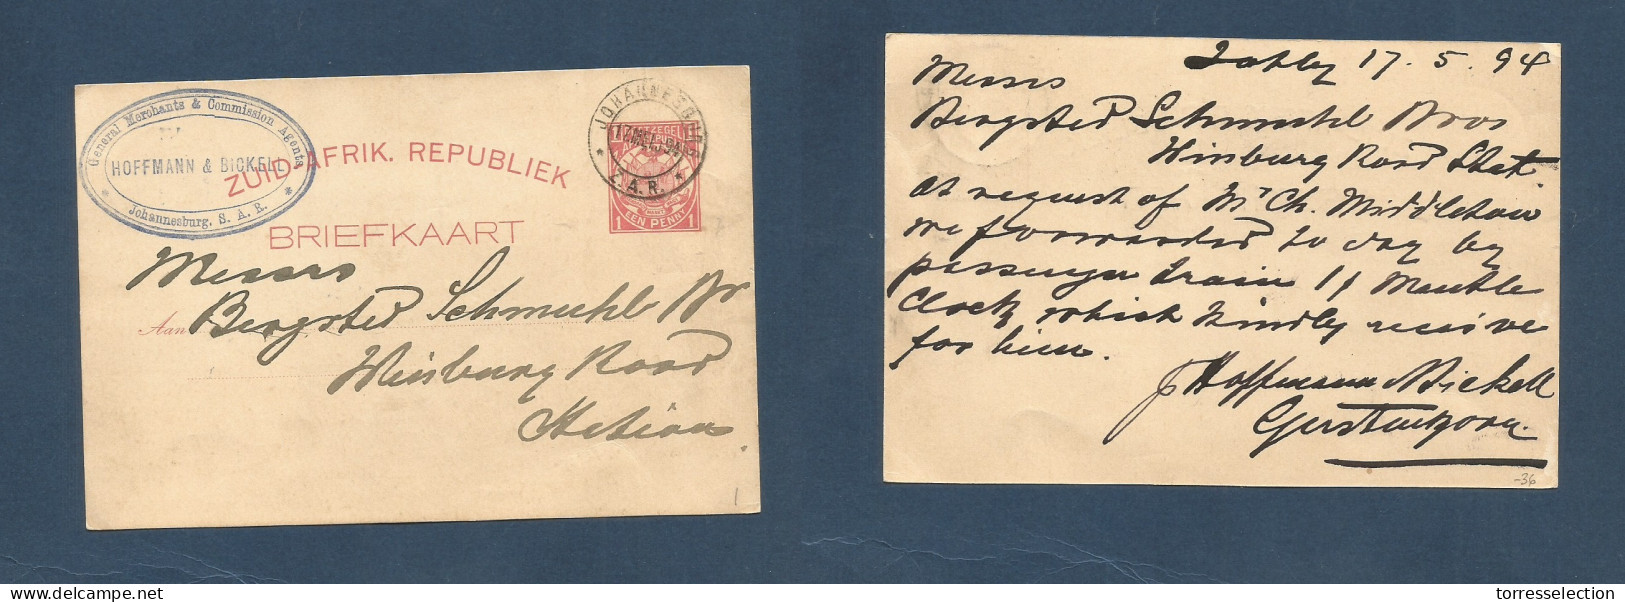 General Merchants & Commission Agents
HOFFMANN & BICKEL
* Johannesburg, S. A. R. *
ZUID-AFRIK. REPUBLIEK
BRIEFKAART
JOHANNESBURG
17 MEI 94
Z.A.R.
POSTZEGEL
EEN PENNY
1 1
Messrs
Aan Bergsted Schmuhl Br
Winburg Road
Station
1
Johbg 17. 5. 94
Messrs
Bergsted Schmuhl Bros
Winburg Road Stat.
At request of Mr Ch. Middleton
we forwarded to day by
passenger train 1/ Mantle
Clock, which kindly receive
for him.
p Hoffmann & Bickell
-36
torresselection